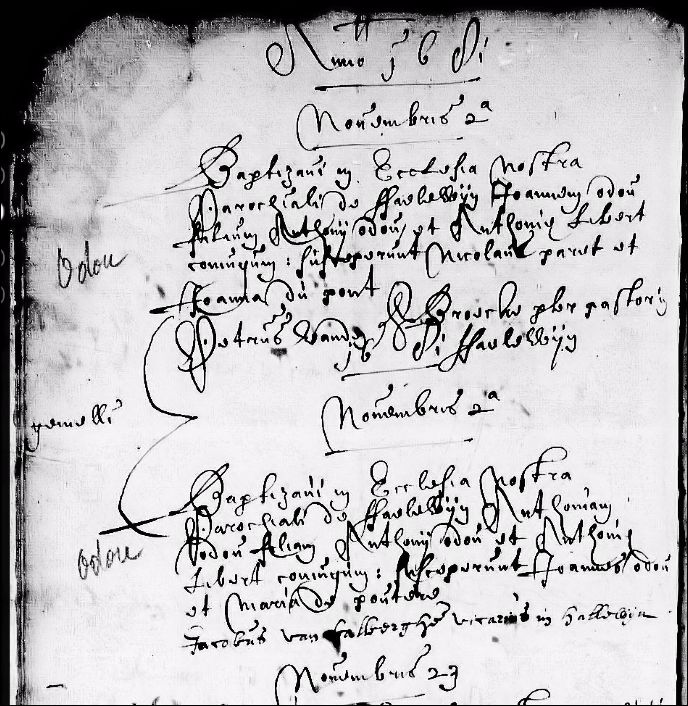 Anno 1681
Novembris 2a
Baptizavi in Ecclesia nostra
Parochiali de Haelewijn Joannem odou
filium Anthonij odou et Anthonie Libert
coniugum: susceperunt Nicolaus paret et
Joanna du pont
Odou
Petrus Vande Broecke pbr pastor in
1681 Haelewijn
gemelli
Novembris 2a
Baptizavi in Ecclesia nostra
Parochiali de Haelewijn Anthoniam
odou filiam Anthonij odou et Anthonie
Odou
Libert coniugum: susceperunt Joannes odou
et Maria de
Jacobus van vicarius in hallewin
Novembris 23